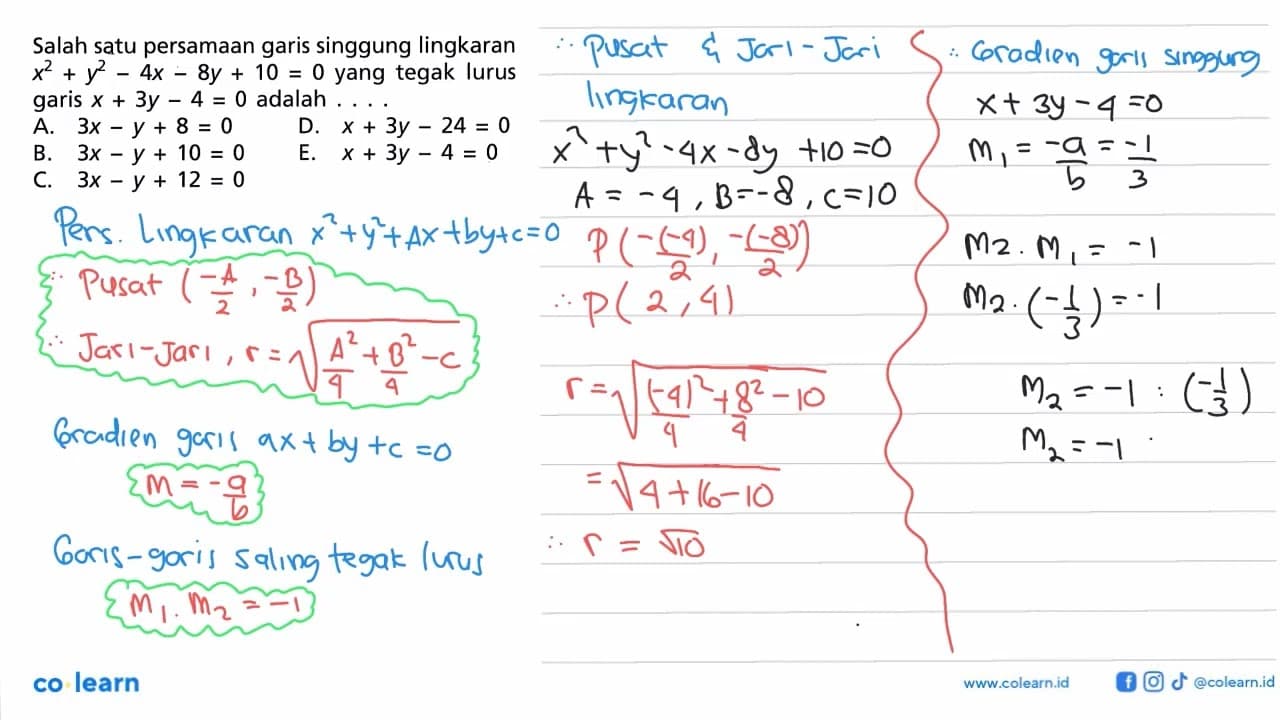 Salah satu persamaan garis singgung lingkaran
x² + y² – 4x – 8y + 10 = 0 yang tegak lurus
garis x + 3y – 4 = 0 adalah . . . .
A. 3x – y + 8 = 0 D. x + 3y – 24 = 0
B. 3x – y + 10 = 0 E. x + 3y – 4 = 0
C. 3x – y + 12 = 0
Pers. Lingkaran x²+y²+Ax+by+c=0
∴ Pusat (-A/2, -B/2)
∴ Jari-Jari, r = √(A²/4 + B²/4 - C)
Gradien garis ax + by + c = 0
m = -a/b
Garis-garis saling tegak lurus
M₁. M₂ = -1
∴ Pusat & Jari-Jari
lingkaran
x² + y² - 4x - 8y + 10 = 0
A = -4, B = -8, C = 10
P(-(-4)/2, -(-8)/2)
∴ P(2, 4)
r = √((-4)²/4 + 8²/4 - 10)
= √4 + 16 - 10
∴ r = √10
∴ Gradien garis singgung
x + 3y - 4 = 0
M₁ = -a/b = -1/3
M₂. M₁ = -1
M₂. (-1/3) = -1
M₂ = -1 : (-1/3)
M₂ = -1 .
co learn
www.colearn.id
@colearn.id